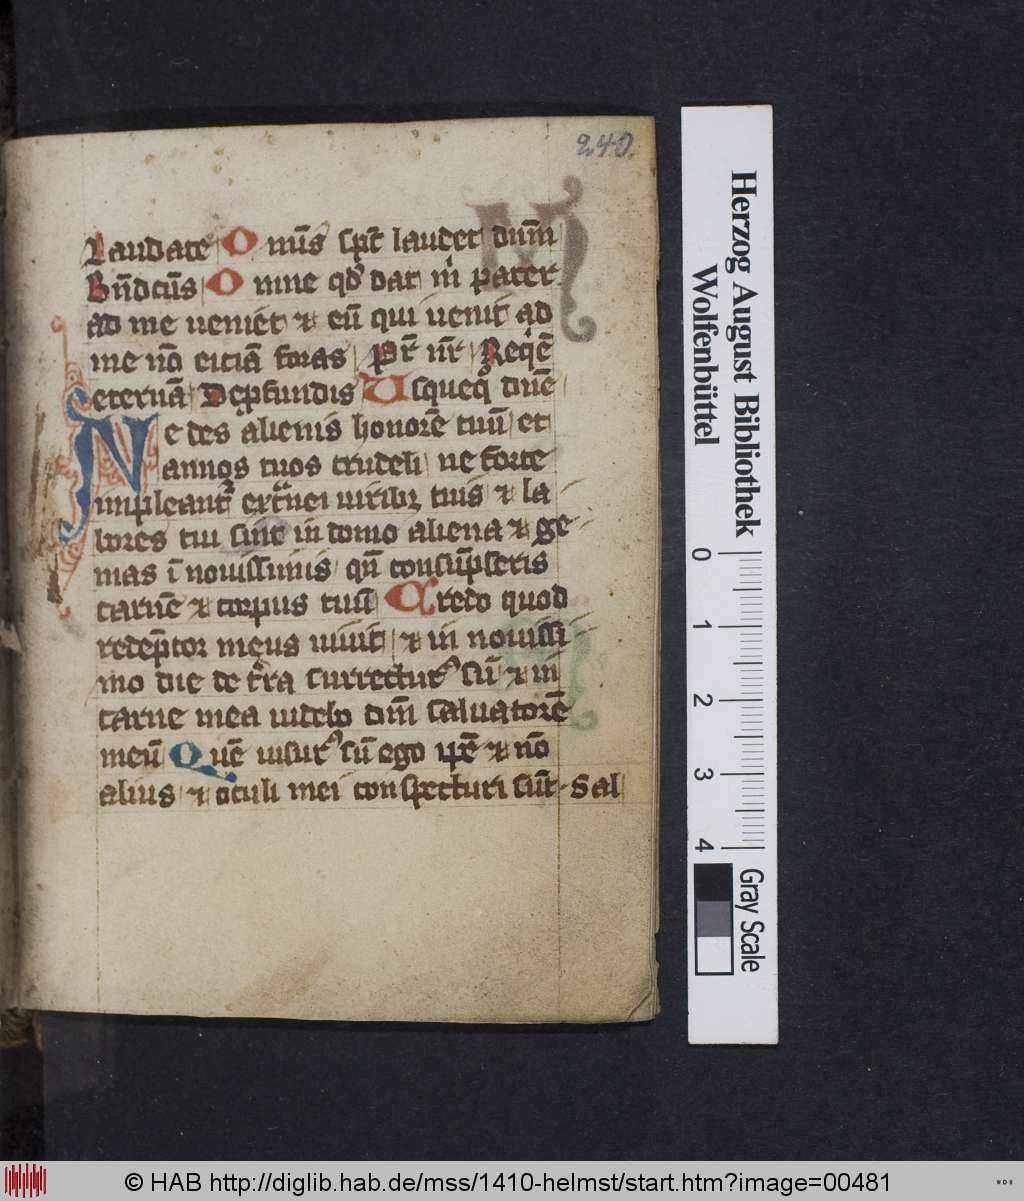 240.
Laudate O mn̄s sp̄c laudet dn̄m
Bn̄dcūs O mne qd̓ dat m̓ pater
ad me veniet ⁊ eū qui uenit ad
me nō eiciā foras Pr̄ nr̄ Req̓ē
eternā Deꝓfundis Vsqueq̓ dn̄e
Ne des alienis honorē tuū et
annos tuos crudeli ne forte
impleant᷑ ext̓nei viribꝫ tuis ⁊ la
bores tui sint in domo aliena ⁊ ge
mas ī nouissimis qn̄ consūpseris
carnē ⁊ corpus tuū Credo quod
redēptor meus viuit ⁊ in nouissi
mo die de t̓ra surrectur᷒ sū ⁊ in
carne mea videbo dm̄ saluatorē
meū Quē visur᷒ sū ego ip̄e ⁊ nō
alius ⁊ oculi mei conspecturi sūt Sal
Herzog August Bibliothek
Wolfenbüttel
0 1 2 3 4
Gray Scale
© HAB http://diglib.hab.de/mss/1410-helmst/start.htm?image=00481